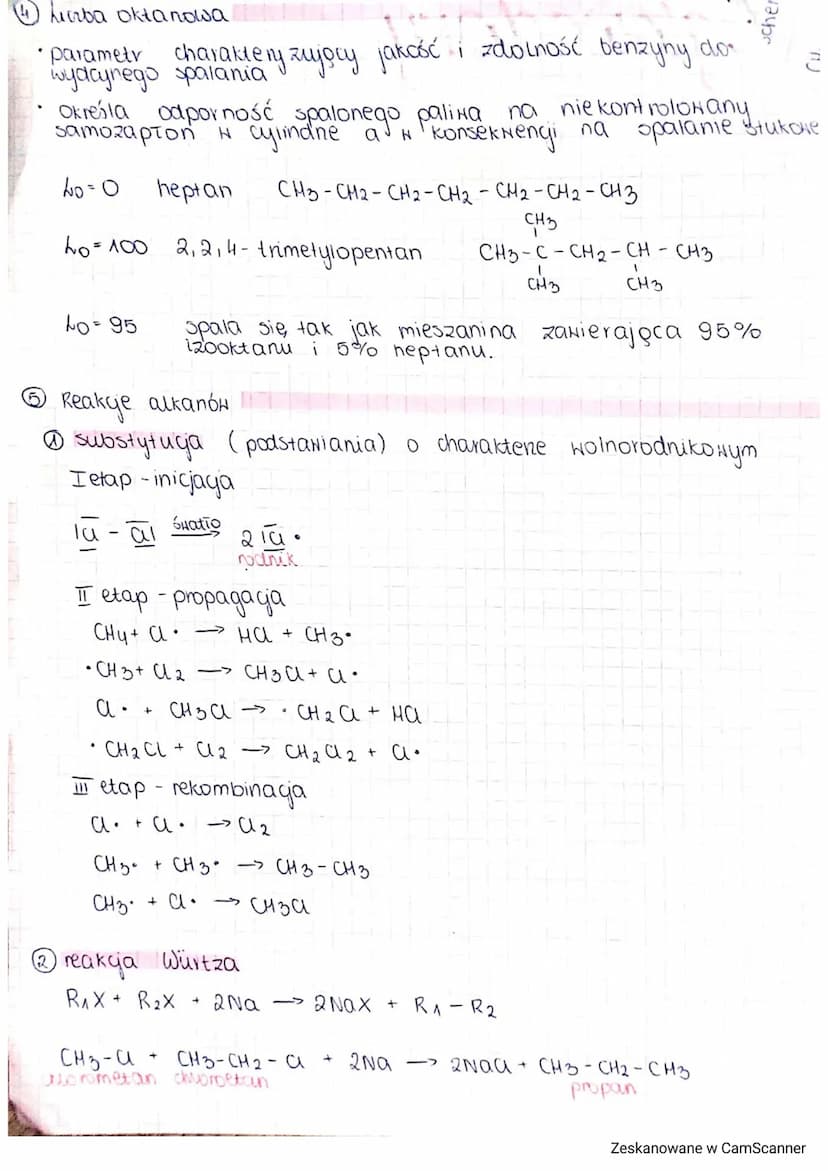 ④ Liczba oktanowa
• parametr charakteryzujący jakość i zdolność benzyny do
wydajnego spalania
• Określa odporność spalonego paliwa na niekontrolowany
samozapłon w cylindrze a w konsekwencji na spalanie stukowe
LO = 0 heptan CH3 - CH2 - CH2 - CH2 - CH2 - CH2 - CH3
CH3
LO = 100 2,2,4 - trimetylopentan CH3 - C - CH2 - CH - CH3
CH3 CH3
LO = 95 spala się tak jak mieszanina zawierająca 95%
izooktanu i 5% heptanu.
⑤ Reakcje alkanów
① substytucja (podstawiania) o charakterze wolnorodnikowym
I etap - inicjacja
|Cl - Cl| światło → 2 |Cl •
rodnik
II etap - propagacja
CH4 + Cl • → HCl + CH3 •
• CH3 + Cl2 → CH3Cl + Cl •
Cl • + CH3Cl → • CH2Cl + HCl
• CH2Cl + Cl2 → CH2Cl2 + Cl •
III etap - rekombinacja
Cl • + Cl • → Cl2
CH3 • + CH3 • → CH3 - CH3
CH3 • + Cl • → CH3Cl
② reakcja Würtza
R1X + R2X + 2Na → 2NaX + R1 - R2
CH3 - Cl + CH3 - CH2 - Cl + 2Na → 2NaCl + CH3 - CH2 - CH3
chlorometan chloroetan propan
Zeskanowane w CamScanner